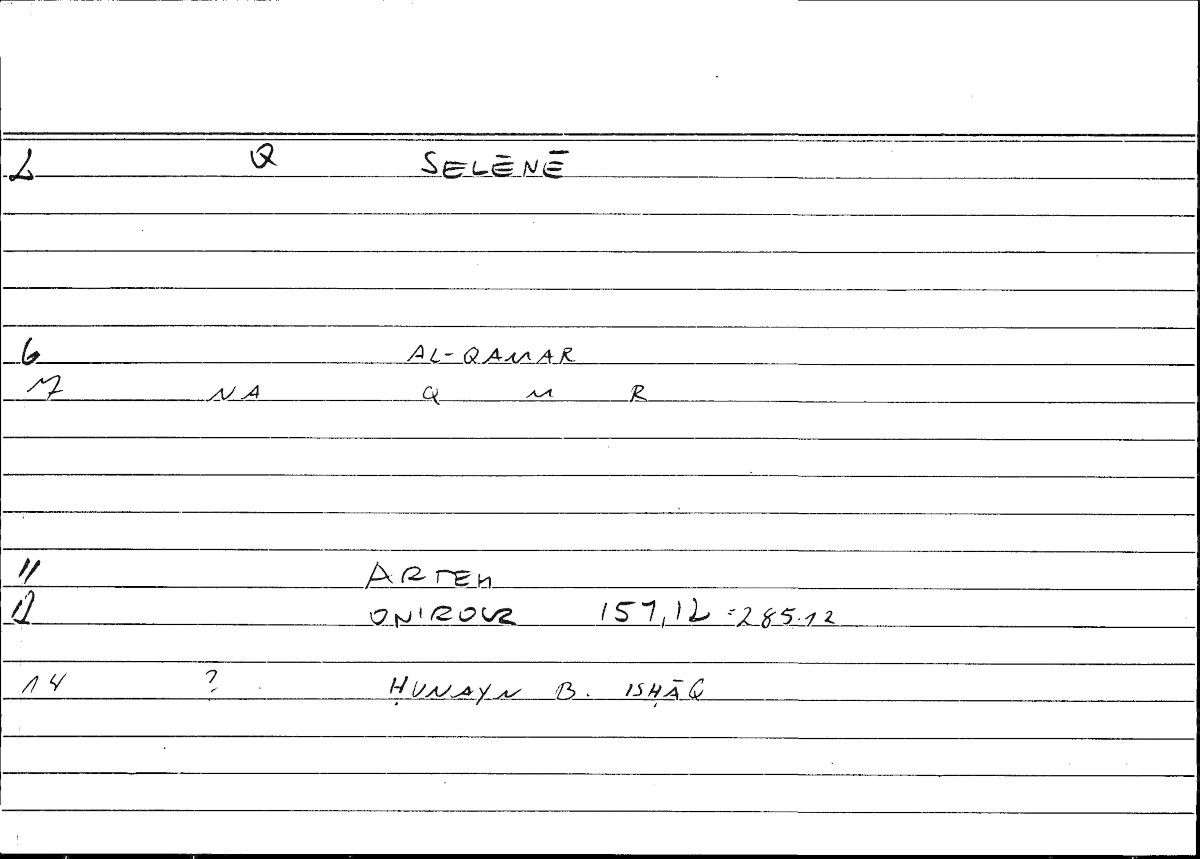 2 Q SELĒNĒ
6 AL-QAMAR
7 NA Q M R
11 ARTEM
12 ONIROCR 157,12 = 285.12
14 ? ḤUNAYN B. ISḤĀQ